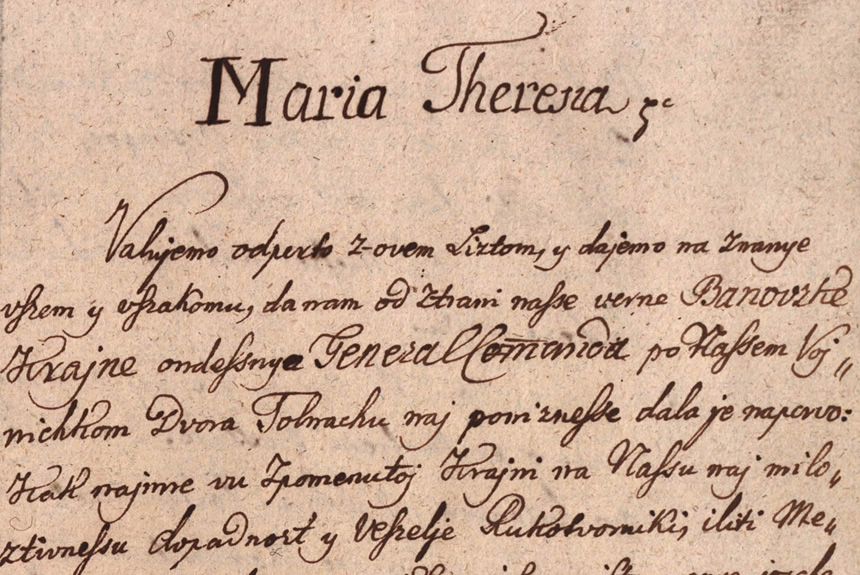 Maria Theresa
Valujemo odperto z-ovem Liztom, y dajemo na znanye
vszem y vszakomu, da nam od ztrani nasse verne Banovzke
Krajne ondessnye General Comanda po Nassem Voj„
nichkom Dvora Tolnachu naj poniznesse dala je napervo:
Kak najmre vu zpomenutoj Krajni na Nassu naj milo„
ztivnessu dopadnozt y Veszelje Rukotvorniki, iliti Me„